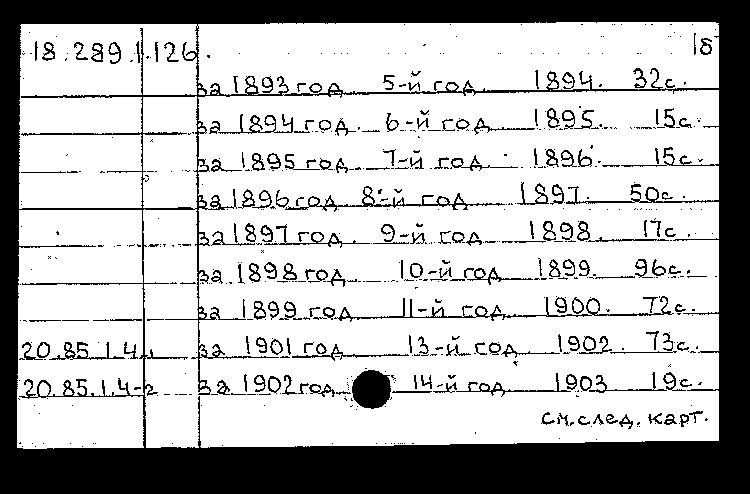 18.289.1.126. 18
за 1893 год 5-й год 1894. 32с.
за 1894 год. 6-й год 1895. 15с.
за 1895 год 7-й год 1896. 15с.
за 1896 год 8-й год 1897. 50с.
за 1897 год. 9-й год 1898. 17с.
за 1898 год 10-й год 1899. 96с.
за 1899 год 11-й год 1900. 72с.
20.85.1.4-1 за 1901 год 13-й год 1902. 73с.
20.85.1.4-2 за 1902 год 14-й год 1903 19с.
см. след. карт.